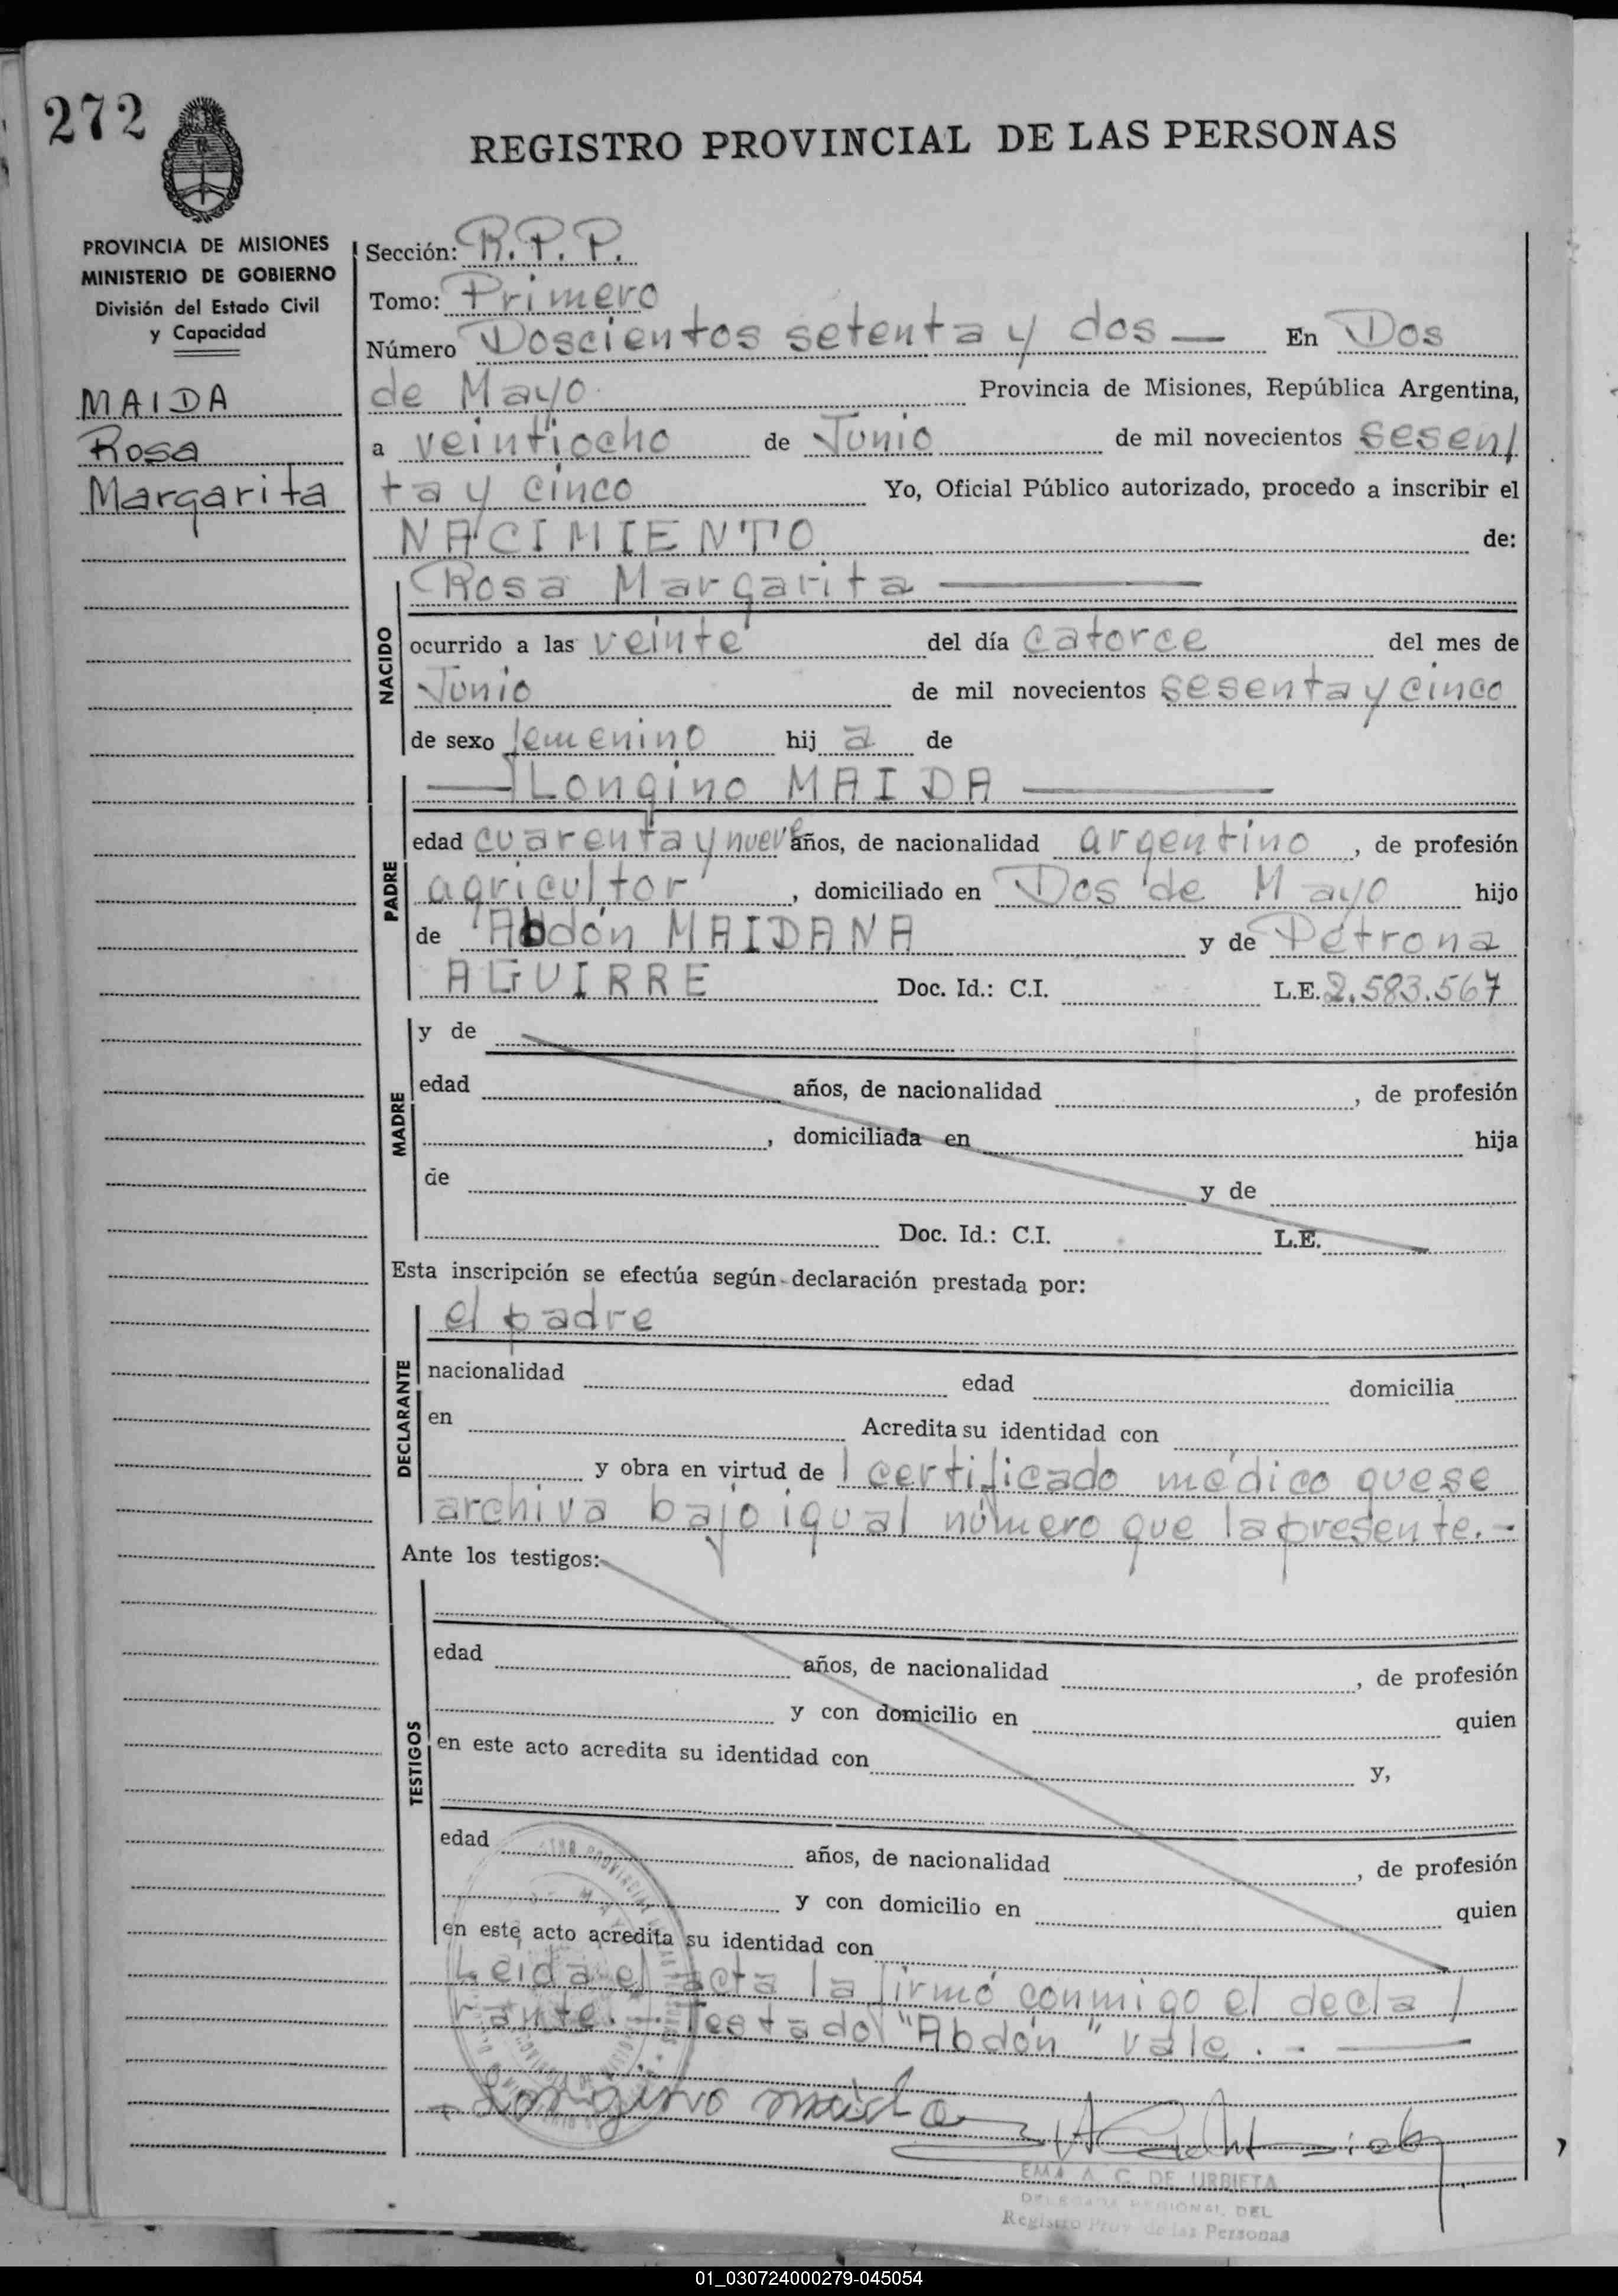 272
REGISTRO PROVINCIAL DE LAS PERSONAS
PROVINCIA DE MISIONES
MINISTERIO DE GOBIERNO
División del Estado Civil
y Capacidad
MAIDA
Rosa
Margarita
Sección: R.P.P.
Tomo: Primero
Número Doscientos setenta y dos — En Dos
de Mayo Provincia de Misiones, República Argentina,
a veintiocho de Junio de mil novecientos sesen/
ta y cinco Yo, Oficial Público autorizado, procedo a inscribir el
NACIMIENTO de:
Rosa Margarita —
NACIDO
ocurrido a las veinte del día catorce del mes de
Junio de mil novecientos sesenta y cinco
de sexo femenino hij a de
— Longino MAIDA —
PADRE
edad cuarenta y nueve años, de nacionalidad argentino, de profesión
agricultor, domiciliado en Dos de Mayo hijo
de Abdón MAIDANA y de Petrona
AGUIRRE Doc. Id.: C.I. L.E. 2.583.567
MADRE
y de
edad años, de nacionalidad , de profesión
, domiciliada en hija
de y de
Doc. Id.: C.I. L.E.
Esta inscripción se efectúa según declaración prestada por:
el padre
DECLARANTE
nacionalidad edad domicilia
en Acredita su identidad con
y obra en virtud de 1 certificado médico que se
archiva bajo igual número que la presente.-
Ante los testigos:
TESTIGOS
edad años, de nacionalidad , de profesión
y con domicilio en quien
en este acto acredita su identidad con y,
edad años, de nacionalidad , de profesión
y con domicilio en quien
en este acto acredita su identidad con
Leida el acta la firmó conmigo el decla/
rante.- Testado "Abdón" vale.-—
Longino maida
EMA A. C. DE URBIETA
DELEGADA REGIONAL DEL
Registro Prov. de las Personas
01_030724000279-045054